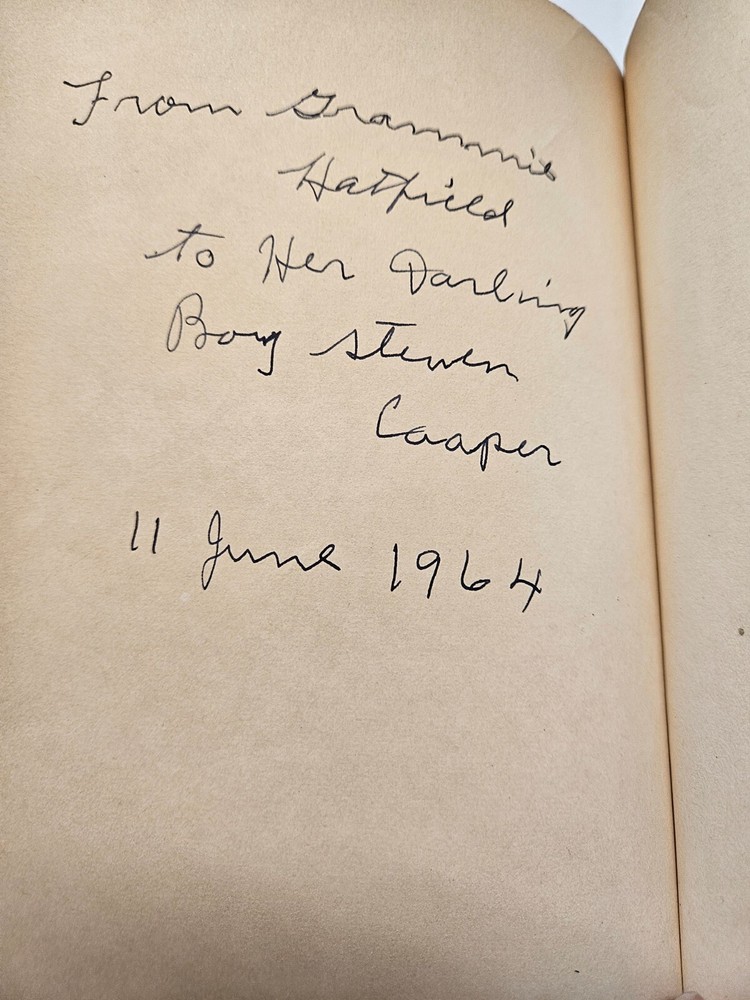 From Grammie
Hatfield
to Her Darling
Boy Steven
Cooper
11 June 1964